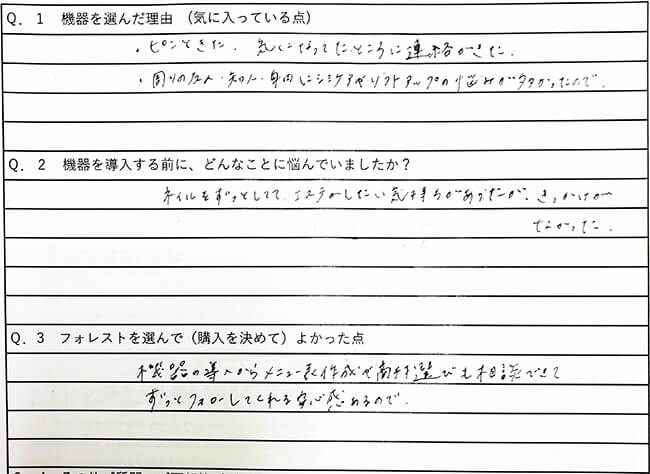 Q. 1 機器を選んだ理由 (気に入っている点)
・ピンときた. 気になってたところに連絡がきた.
・周りの友人・知人・身内にシミケアやリフトアップの悩みが多かったので.
Q. 2 機器を導入する前に、どんなことに悩んでいましたか？
ネイルをずっとしてて、エステがしたい気持ちがあったが、きっかけが
なかった.
Q. 3 フォレストを選んで（購入を決めて）よかった点
機器の導入からメニュー表作成や商材選びも相談できて
ずっとフォローしてくれる安心感あるので.